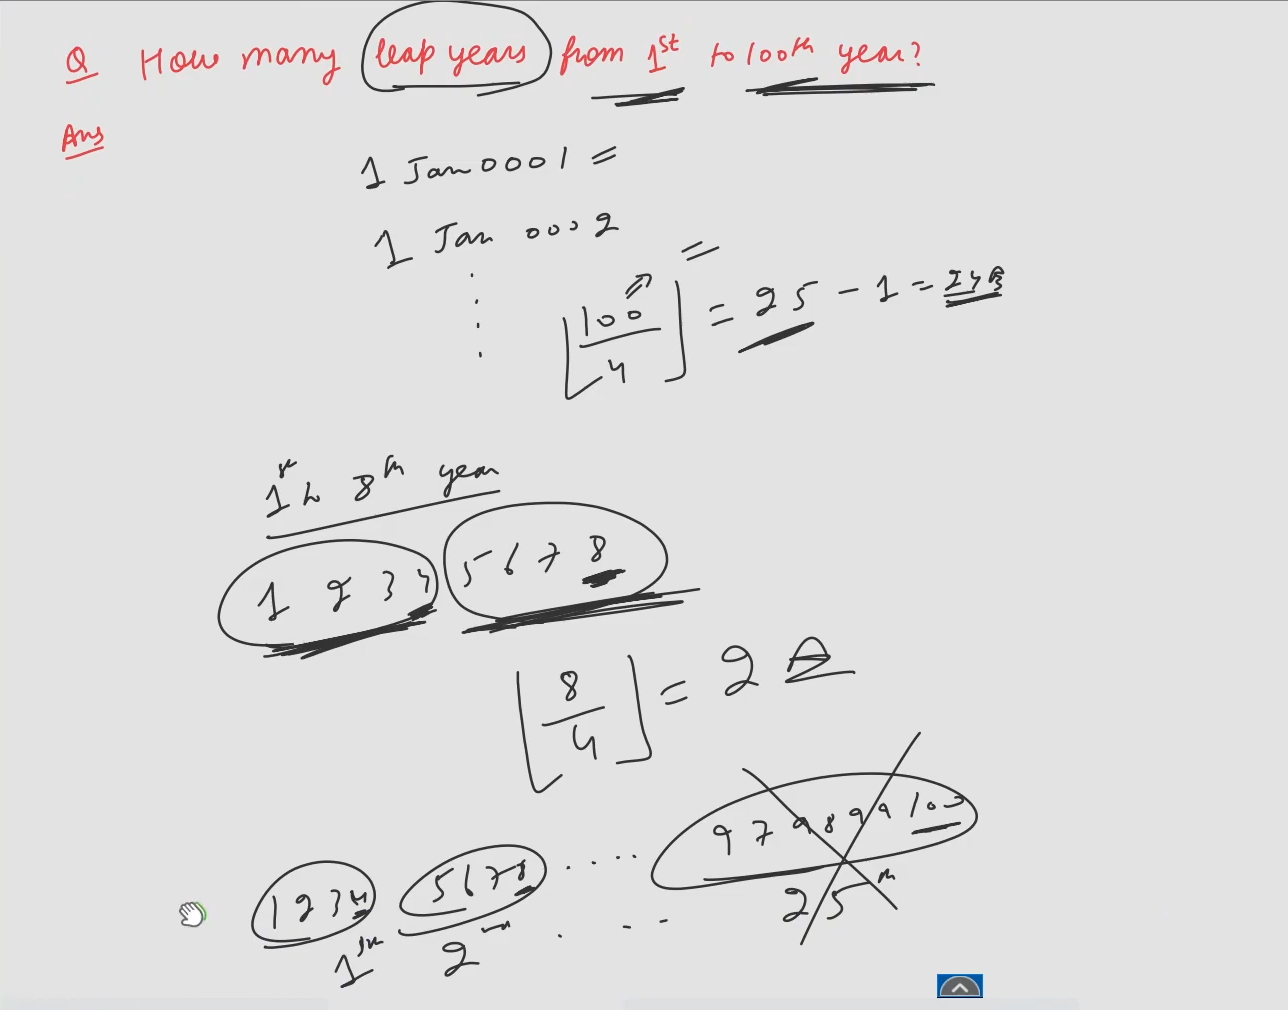 Q How many leap years from 1st to 100th year?
Ans
1 Jan 0001 =
1 Jan 0002
⌊100/4⌋ = 25 - 1 = 24
1st to 8th year
1 2 3 4 5 6 7 8
⌊8/4⌋ = 2
1 2 3 4 5 6 7 8 .... 97 98 99 100
1st 2nd . - - 25th